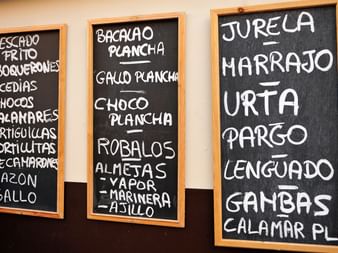 ESCADO
FRITO
BOQUERONES
CEDIAS
CHOCOS
CALAMARES
ORTIGUILLAS
TORTILLITAS
DE CAMARONES
CAZON
GALLO
BACALAO
PLANCHA
GALLO PLANCHA
CHOCO
PLANCHA
ROBALOS
ALMEJAS
- VAPOR
- MARINERA
- AJILLO
JURELA
MARRAJO
URTA
PARGO
LENGUADO
GAMBAS
CALAMAR PL